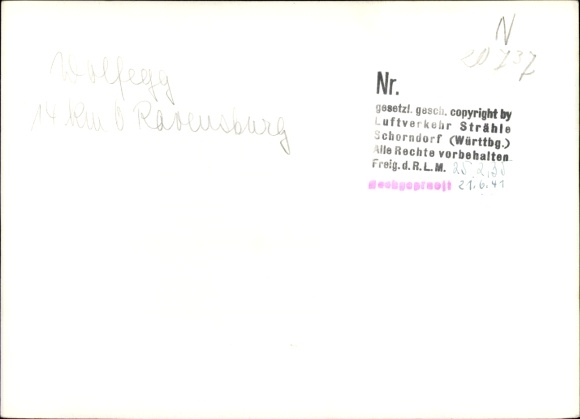 Wolfegg
14 km O Ravensburg
N
20737
Nr.
gesetzl. gesch. copyright by
Luftverkehr Strähle
Schorndorf (Württbg.)
Alle Rechte vorbehalten.
Freig. d. R. L. M.
Nachgeprüft 21.6.41